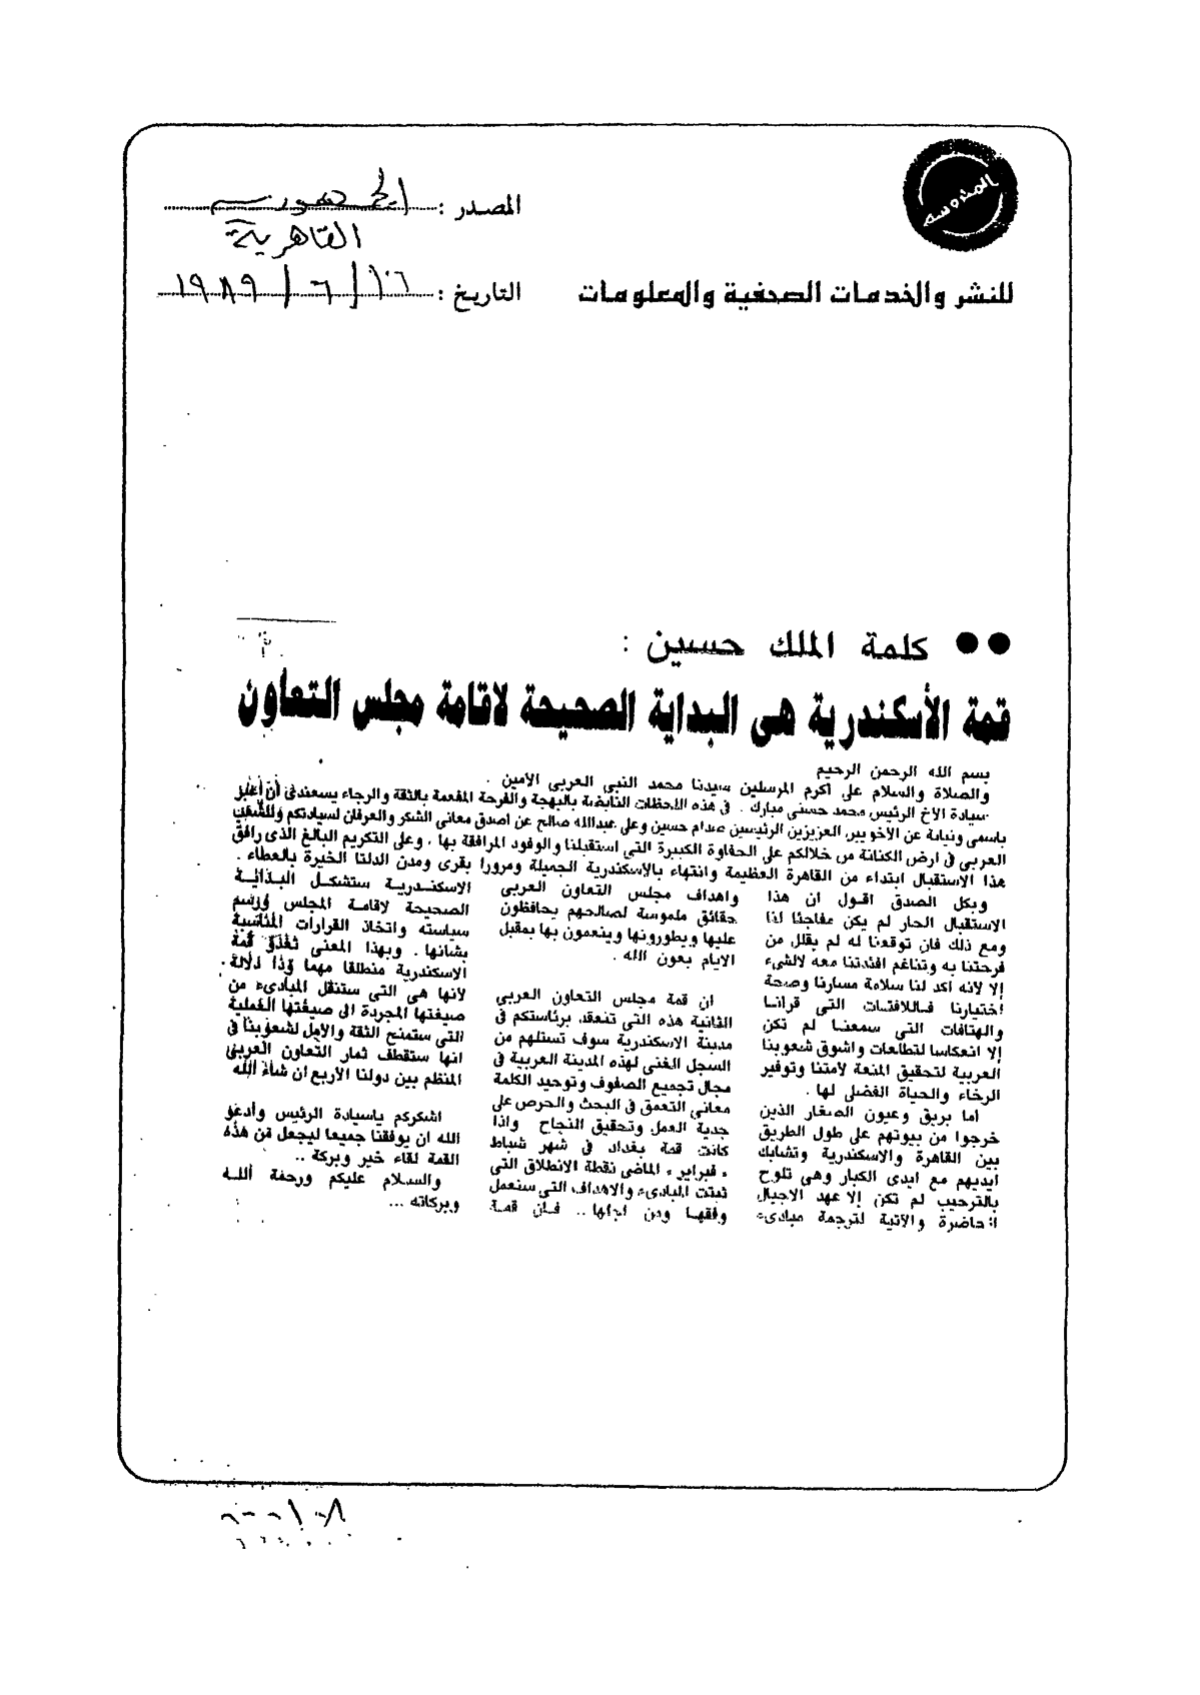 المحروسة
المصدر : الجمهورية
القاهرية
للنشر والخدمات الصحفية والمعلومات
التاريخ : ١٦ / ٦ / ١٩٨٩
●● كلمة الملك حسين :
قمة الأسكندرية هى البداية الصحيحة لاقامة مجلس التعاون
بسم الله الرحمن الرحيم
والصلاة والسلام على اكرم المرسلين سيدنا محمد النبى العربى الأمين .
سيادة الاخ الرئيس محمد حسنى مبارك . فى هذه اللحظات النابضة بالبهجة والفرحة المفعمة بالثقة والرجاء يسعدنى أن أعبر
باسمى ونيابة عن الأخوين العزيزين الرئيسين صدام حسين وعلى عبدالله صالح عن اصدق معانى الشكر والعرفان لسيادتكم وللشعب
العربى فى ارض الكنانة من خلالكم على الحفاوة الكبيرة التى استقبلنا والوفود المرافقة بها . وعلى التكريم البالغ الذى رافق
هذا الاستقبال ابتداء من القاهرة العظيمة وانتهاء بالاسكندرية الجميلة ومرورا بقرى ومدن الدلتا الخيرة بالعطاء .
وبكل الصدق اقول ان هذا
الاستقبال الحار لم يكن مفاجئا لنا
ومع ذلك فان توقعنا له لم يقلل من
فرحتنا به وتناغم افئدتنا معه لالشىء
إلا لانه اكد لنا سلامة مسارنا وصحة
اختيارنا فاللافتات التى قرأنا
والهتافات التى سمعنا لم تكن
إلا انعكاسا لتطلعات واشوق شعوبنا
العربية لتحقيق المنعة لأمتنا وتوفير
الرخاء والحياة الفضلى لها .
أما بريق وعيون الصغار الذين
خرجوا من بيوتهم على طول الطريق
بين القاهرة والاسكندرية وتشابك
ايديهم مع ايدى الكبار وهى تلوح
بالترحيب لم تكن إلا عهد الاجيال
الحاضرة والآتية لترجمة مبادىء
واهداف مجلس التعاون العربى
حقائق ملموسة لصالحهم يحافظون
عليها ويطورونها وينعمون بها بمقبل
الايام بعون الله .
ان قمة مجلس التعاون العربى
الثانية هذه التى تنعقد برئاستكم فى
مدينة الاسكندرية سوف تستلهم من
السجل الغنى لهذه المدينة العربية فى
مجال تجميع الصفوف وتوحيد الكلمة
معانى التعمق فى البحث والحرص على
جدية العمل وتحقيق النجاح واذا
كانت قمة بغداد فى شهر شباط
« فبراير » الماضى نقطة الانطلاق التى
ثبتت المبادىء والاهداف التى سنعمل
وفقها ومن اجلها .. فان قمة
الاسكندرية ستشكل البداية
الصحيحة لاقامة المجلس ورسم
سياسته واتخاذ القرارات المناسبة
بشانها . وبهذا المعنى تغدو قمة
الاسكندرية منطلقا مهما وذا دلالة .
لانها هى التى ستنقل المبادىء من
صيغتها المجردة الى صيغتها العملية
التى ستمنح الثقة والامل لشعوبنا فى
انها ستقطف ثمار التعاون العربى
المنظم بين دولنا الاربع ان شاء الله
اشكركم ياسيادة الرئيس وأدعو
الله ان يوفقنا جميعا ليجعل من هذه
القمة لقاء خير وبركة ..
والسلام عليكم ورحمة الله
وبركاته ...